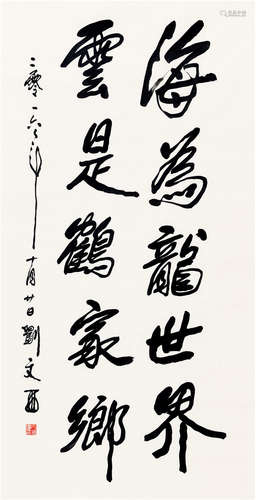 海為龍世界
雲是鶴家鄉
二零一六年十一月廿日劉文西